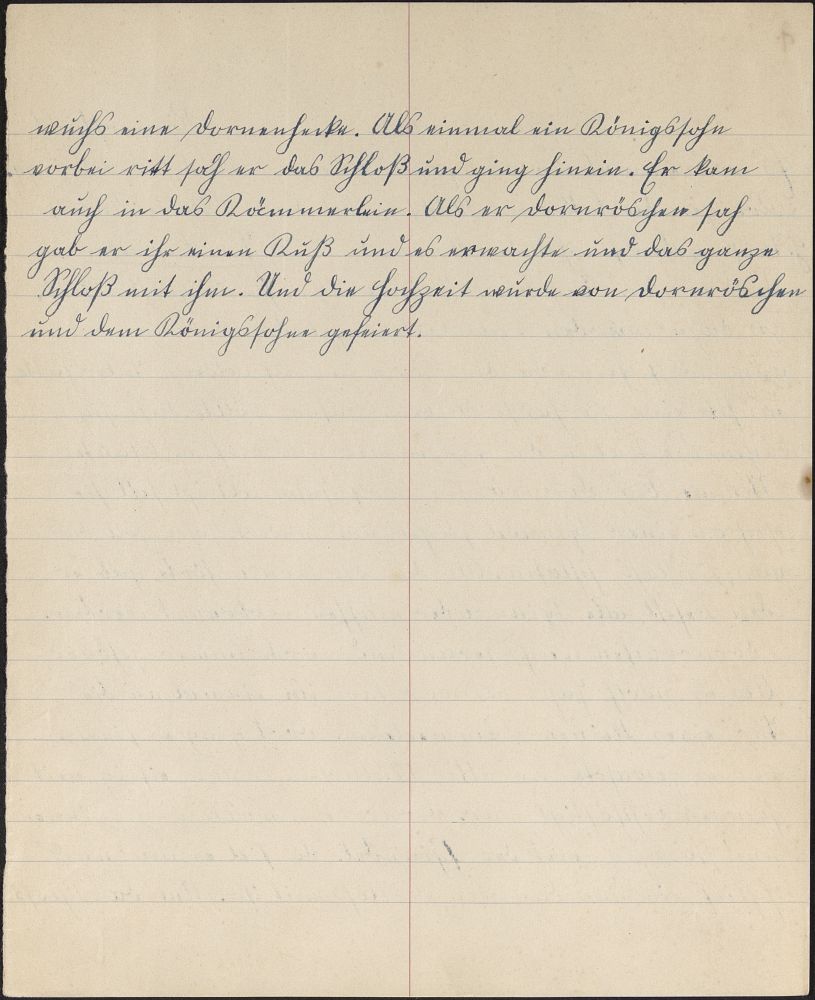 wuchs eine Dornenhecke. Als einmal ein Königssohn
vorbei ritt sah er das Schloß und ging hinein. Er kam
auch in das Kämmerlein. Als er Dornröschen sah
gab er ihr einen Kuß und es erwachte und das ganze
Schloß mit ihm. Und die Hochzeit wurde von Dornröschen
und dem Königssohne gefeiert.